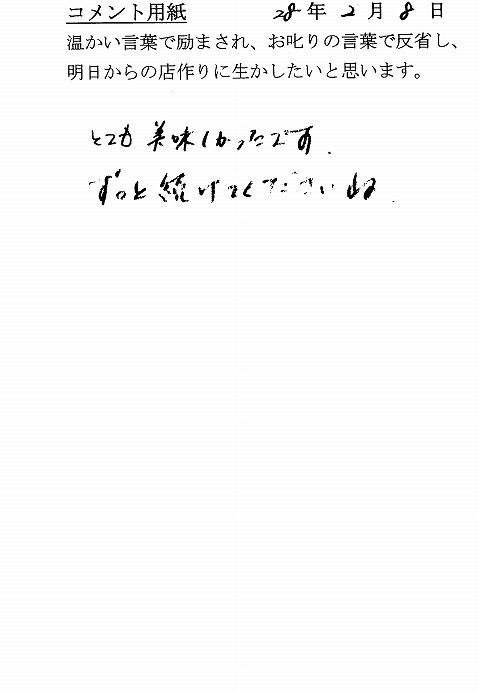 コメント用紙 28年 2月 8日
温かい言葉で励まされ、お叱りの言葉で反省し、
明日からの店作りに生かしたいと思います。
とても美味しかったです.
ずっと続けてくださいね.